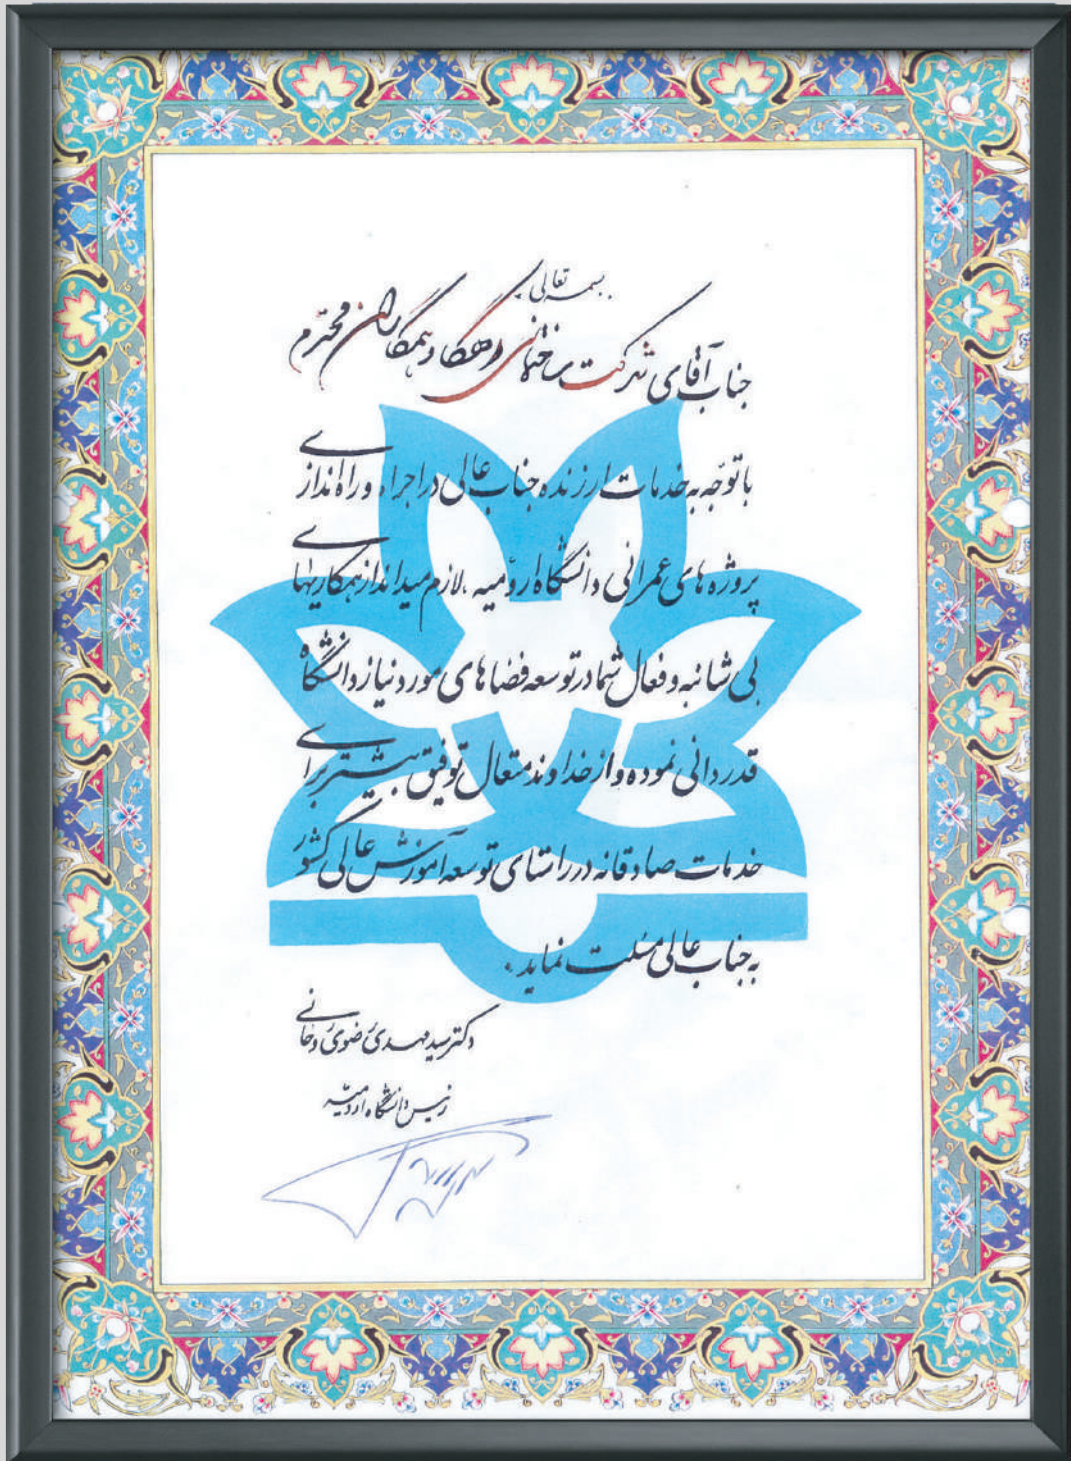 بسمه تعالی
جناب آقای شرکت ساختمانی و همکاران محترم
با توجّه به خدمات ارزنده جناب عالی در اجراء و راه اندازی
پروژه های عمرانی دانشگاه ارومیه لازم میداند از همکاریهای
بی شائبه و فعال شما در توسعه فضاهای مورد نیاز دانشگاه
قدردانی نموده و از خداوند متعال توفیق بیشتر برای
خدمات صادقانه در راستای توسعه آموزش عالی کشور
به جناب عالی مسئلت نماید .
دکتر سید مهدی رضوی روحانی
رئیس دانشگاه ارومیه